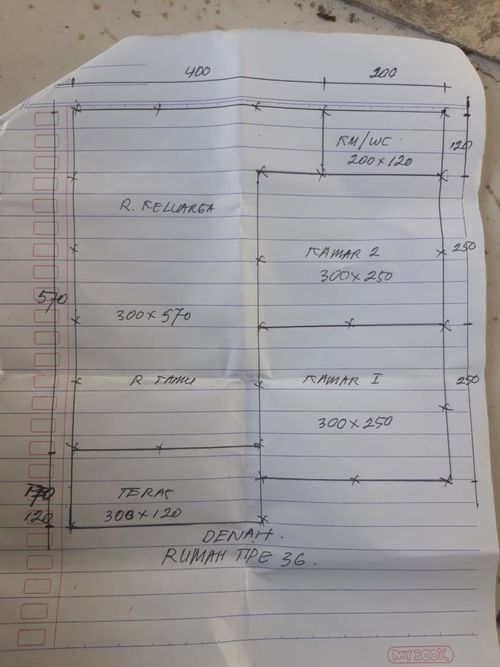 400
200
KM/WC
200 x 120
120
R. KELUARGA
KAMAR 2
300 x 250
250
570
300 x 570
R. TAMU
KAMAR I
250
300 x 250
TERAS
300 x 120
120
DENAH.
RUMAH TIPE 36.
MY BOOK